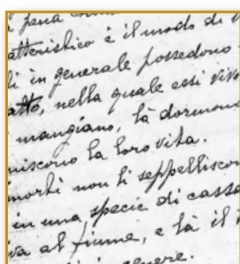 pena
atteristico è il modo di
li in generale possedono
atto, nella quale essi viv
mangiano, là dormono
niscono la loro vita.
morti non li seppelliscon
in una specie di cassa
va al fiume, e là il